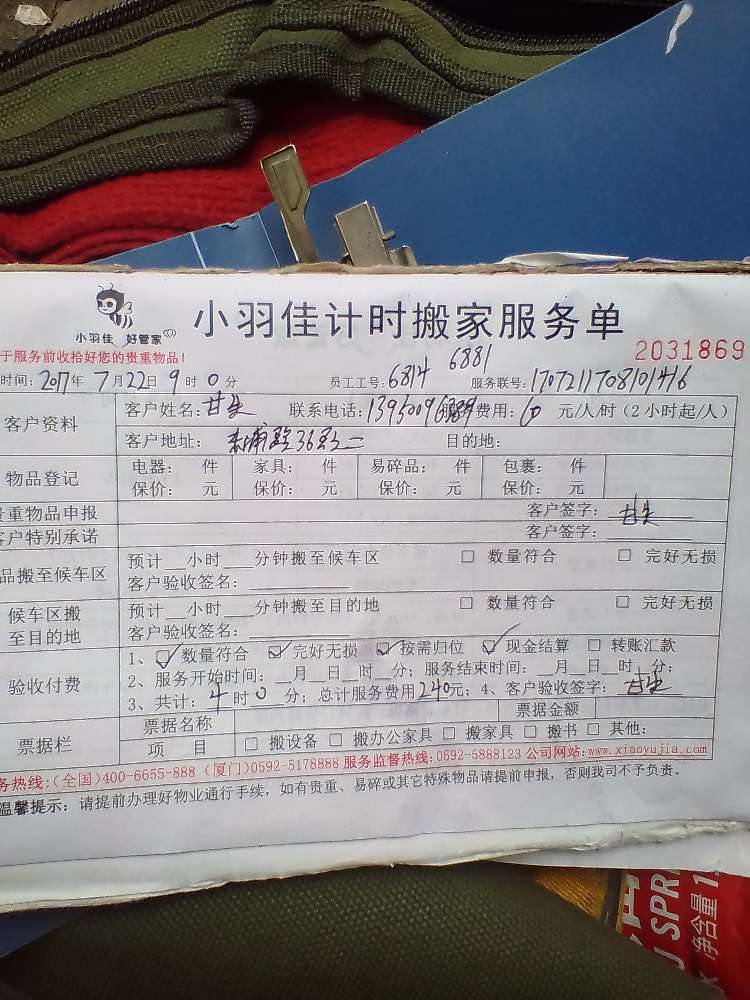 小羽佳 好管家
小羽佳计时搬家服务单
于服务前收拾好您的贵重物品！
2031869
时间：2017年7月22日9时0分 员工工号：6814 6881 服务联号：1707211708101416
客户资料
客户姓名：甘 联系电话： 服务费用：60 元/人/时（2小时起/人）
客户地址： 36号 目的地：
物品登记
电器： 件 家具： 件 易碎品： 件 包裹： 件
保价： 元 保价： 元 保价： 元 保价： 元
贵重物品申报 客户签字：甘
客户特别承诺 客户签字：
品搬至候车区
预计__小时___分钟搬至候车区 □ 数量符合 □ 完好无损
客户验收签名：
候车区搬至目的地
预计__小时___分钟搬至目的地 □ 数量符合 □ 完好无损
客户验收签名：
验收付费
1、☑数量符合 ☑完好无损 ☑按需归位 ☑现金结算 □ 转账汇款
2、服务开始时间：__月__日__时__分；服务结束时间：__月__日__时__分；
3、共计：4时0分；总计服务费用240元；4、客户验收签字：甘
票据栏
票据名称 票据金额
项 目 □ 搬设备 □ 搬办公家具 □ 搬家具 □ 搬书 □ 其他：
务热线:(全国)400-6655-888 (厦门)0592-5178888 服务监督热线:0592-5888123 公司网站:www.xiaoyujia.com
温馨提示：请提前办理好物业通行手续，如有贵重、易碎或其它特殊物品请提前申报，否则我司不予负责。
SPR
净含量